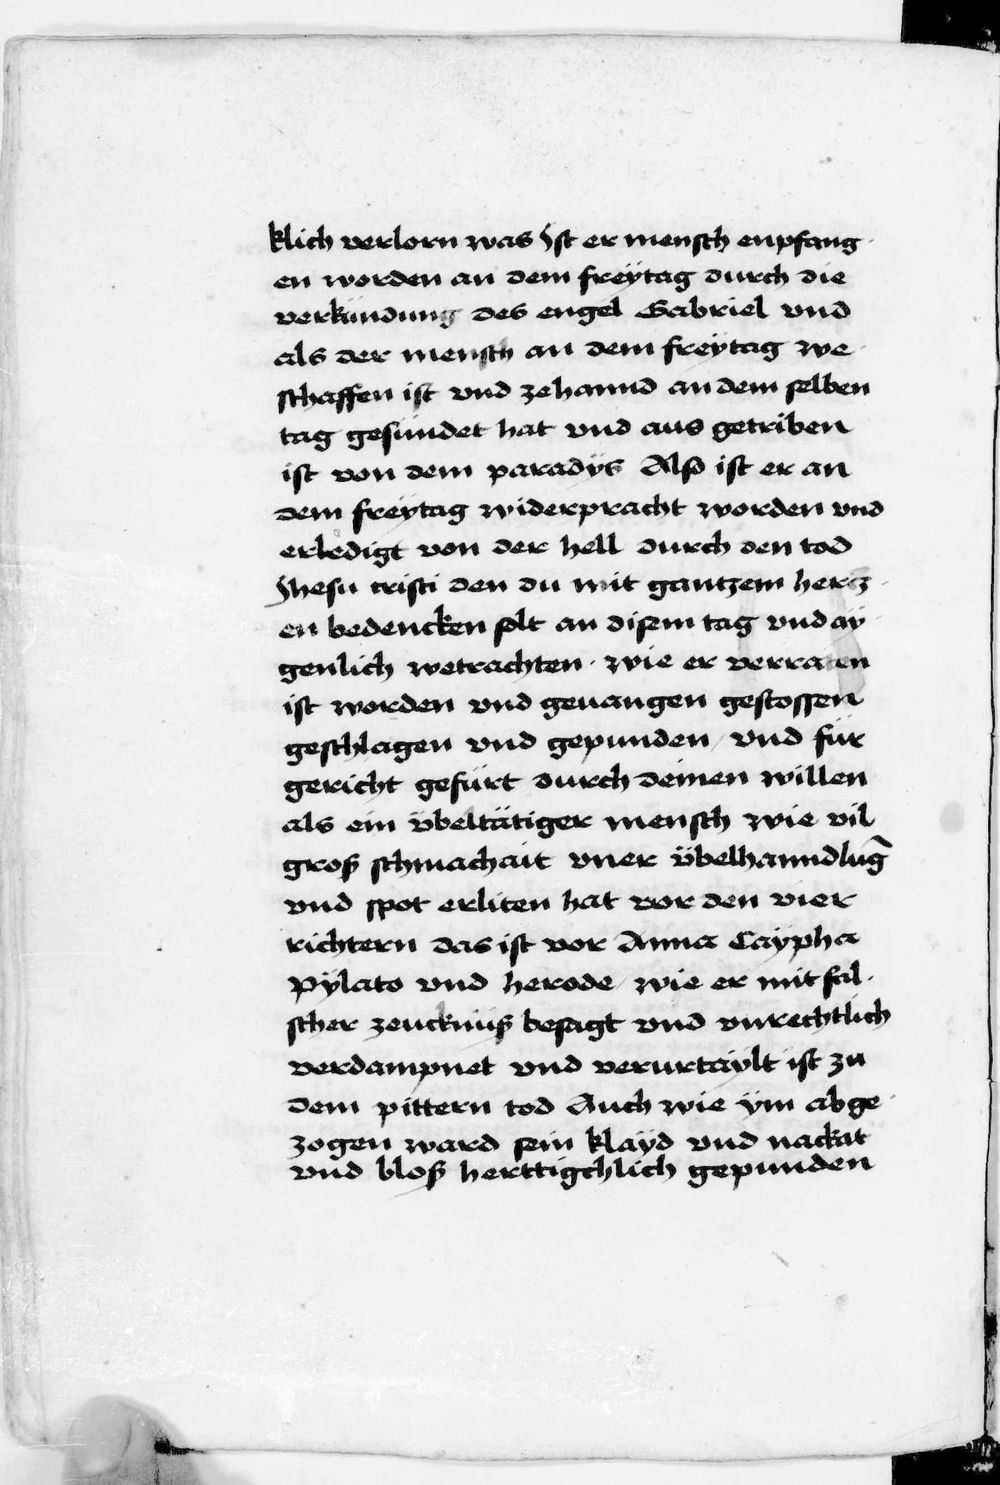 klich verlorn was Ist er mensch enpfang
en worden an dem freÿtag durch die
verkündung des engel Gabriel vnd
als der mensch an dem freÿtag we
schaffen ist vnd zehannd an dem selben
tag gesündet hat vnd aus getriben
ist von dem paradÿs Also ist er an
dem freÿtag widerpracht worden vnd
erledigt von der hell durch den tod
Ihesu cristi den du mit gantzem hercz
en bedencken solt an disem tag vnd aÿ
genlich wetrachten · wie er verraten
ist worden vnd geuangen gestossen
geschlagen vnd gepunden / vnd für
gericht gefürt durch deinen willen
als ein v̈beltätiger mensch wie vil
groß schmachait vner v̈belhanndlūg
vnd spot erliten hat vor den vier
richtern das ist vor Anna Caÿpha
Pÿlato vnd herode / wie er mit fal
scher zeucknüß besagt vnd vnrechtlich
verdampnet vnd verurtaÿlt ist zu
dem pittern tod Auch wie ÿm abge
zogen ward sein klaÿd vnd nackat
vnd bloß herttigchlich gepunden